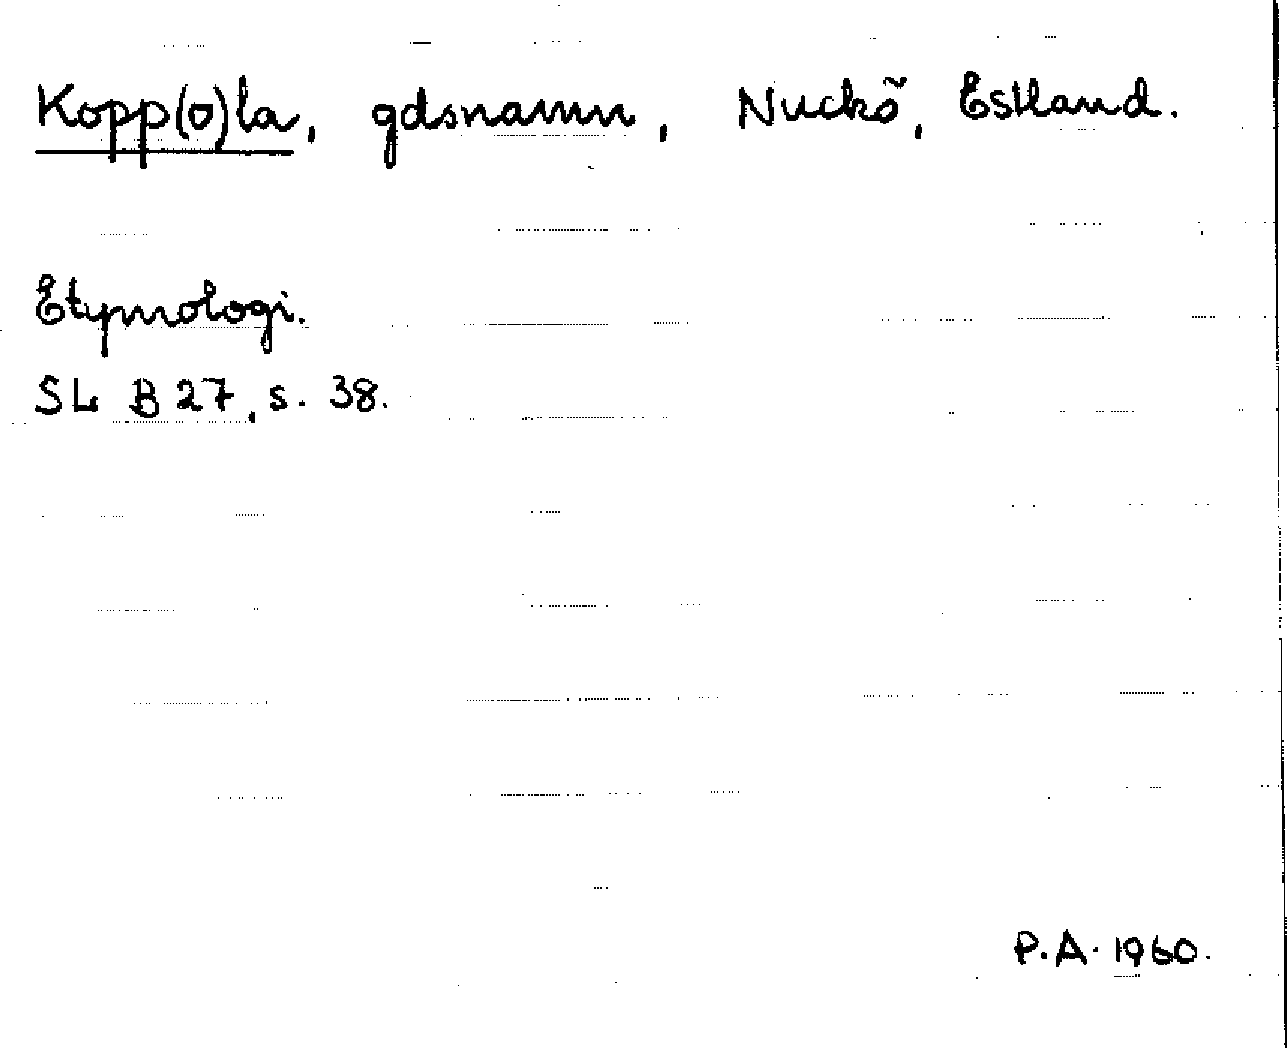 Kopp(o)la, gdsnamn, Nuckö, Estland.
Etymologi.
SL B 27, s. 38.
P.A. 1960.